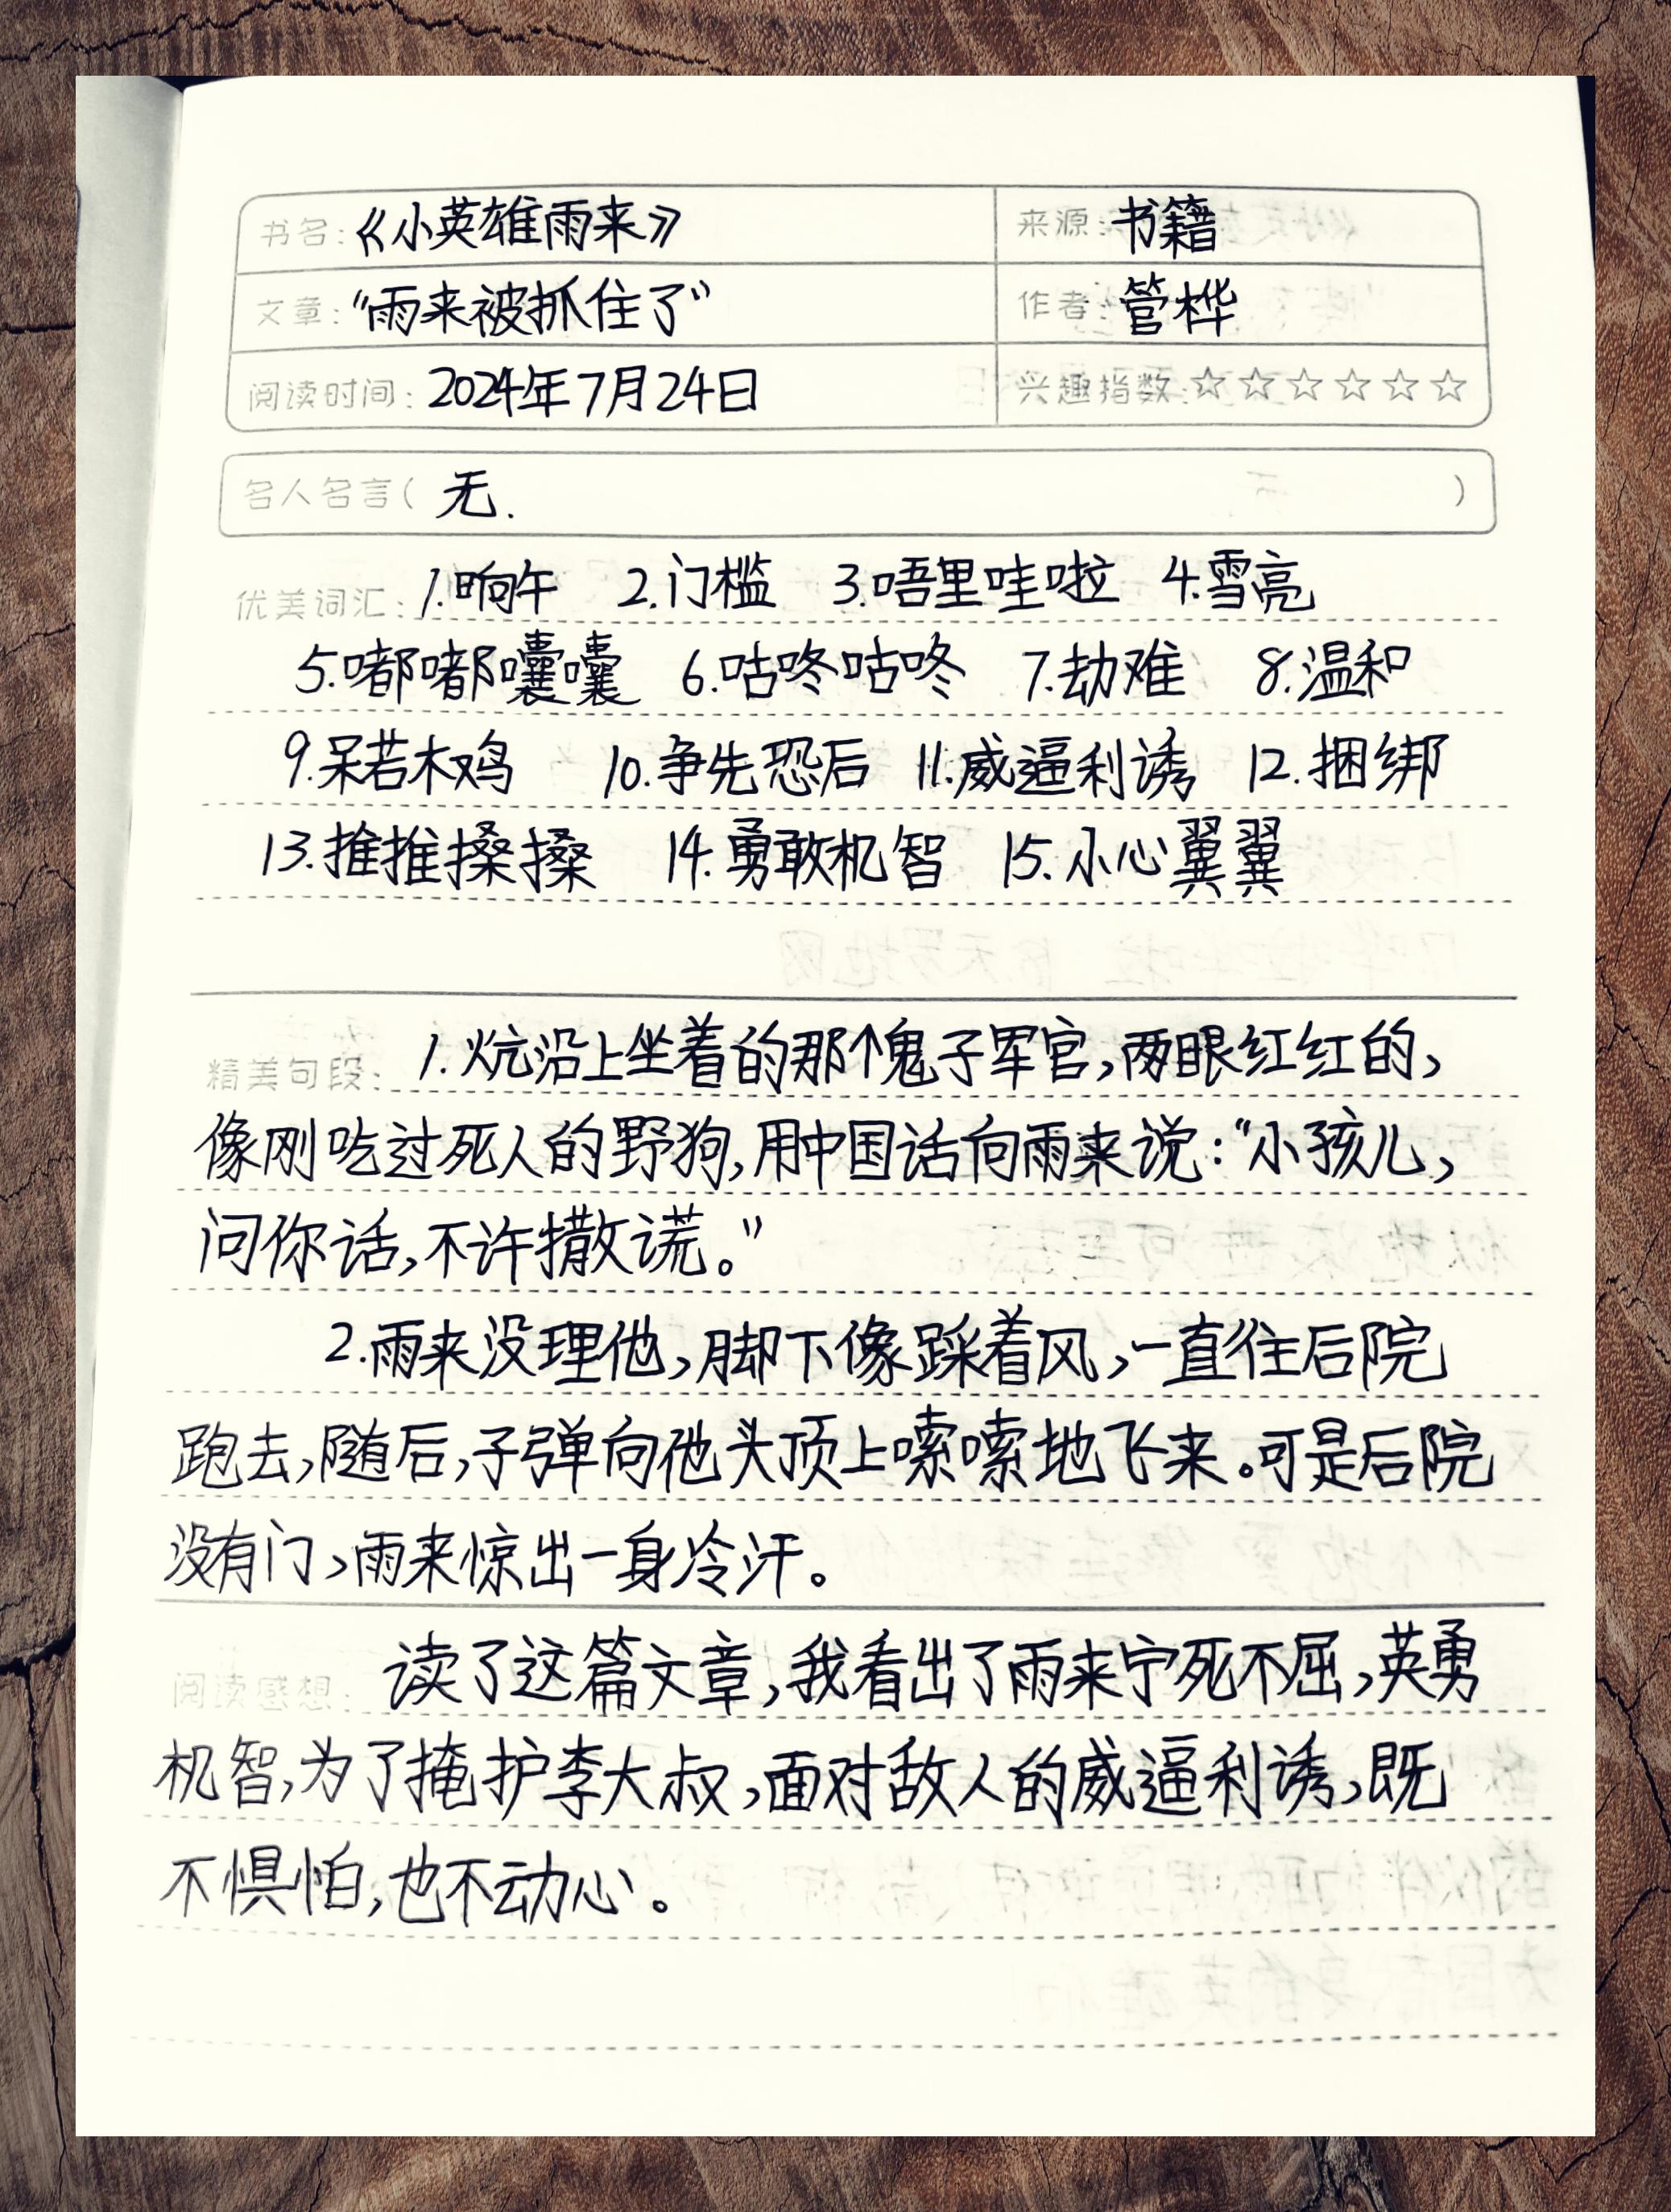 书名：《小英雄雨来》 来源：书籍
文章：“雨来被抓住了” 作者：管桦
阅读时间：2024年7月24日 兴趣指数：☆☆☆☆☆☆
名人名言（ 无. ）
优美词汇：1.晌午 2.门槛 3.唔里哇啦 4.雪亮
5.嘟嘟囔囔 6.咕咚咕咚 7.劫难 8.温和
9.呆若木鸡 10.争先恐后 11.威逼利诱 12.捆绑
13.推推搡搡 14.勇敢机智 15.小心翼翼
精美句段：1.炕沿上坐着的那个鬼子军官，两眼红红的，
像刚吃过死人的野狗，用中国话向雨来说：“小孩儿，
问你话，不许撒谎。”
2.雨来没理他，脚下像踩着风，一直往后院
跑去，随后，子弹向他头顶上嗦嗦地飞来。可是后院
没有门，雨来惊出一身冷汗。
阅读感想：读了这篇文章，我看出了雨来宁死不屈，英勇
机智，为了掩护李大叔，面对敌人的威逼利诱，既
不惧怕，也不动心。